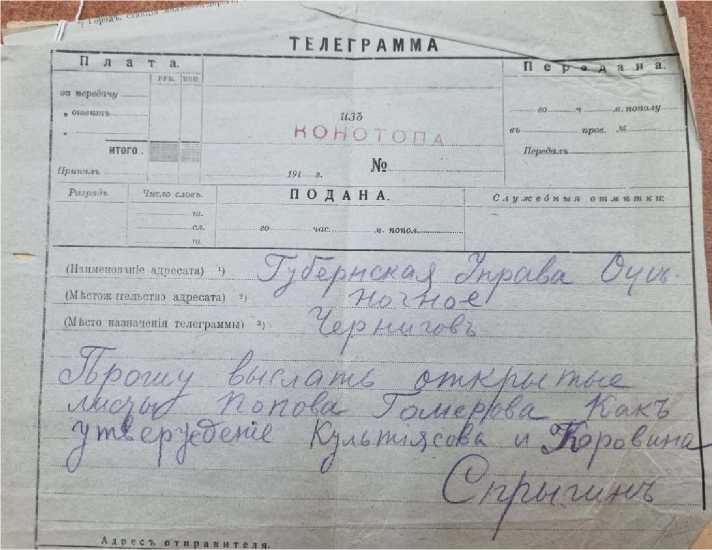 ТЕЛЕГРАММА
Плата.
РУБ. КОП.
за передачу
„ отвѣтъ
„
ИТОГО.
Принялъ
изъ
КОНОТОПА
191 г. №
Передана.
го ч. м. пополу
въ пров. №
Передалъ
Разрядъ. Число словъ.
ПОДАНА.
Служебныя отмѣтки:
го час. м. попол.
(Наименованіе адресата) ¹) Губернская Управа Оцѣ-
(Мѣстожительство адресата) ²) ночное
(Мѣсто назначенія телеграммы) ³) Черниговъ
Прошу выслать открытые
листы Попова Гомерова Какъ
утвержденіе Культіясова и Коровина
Спрыгинъ
Адресъ отправителя.